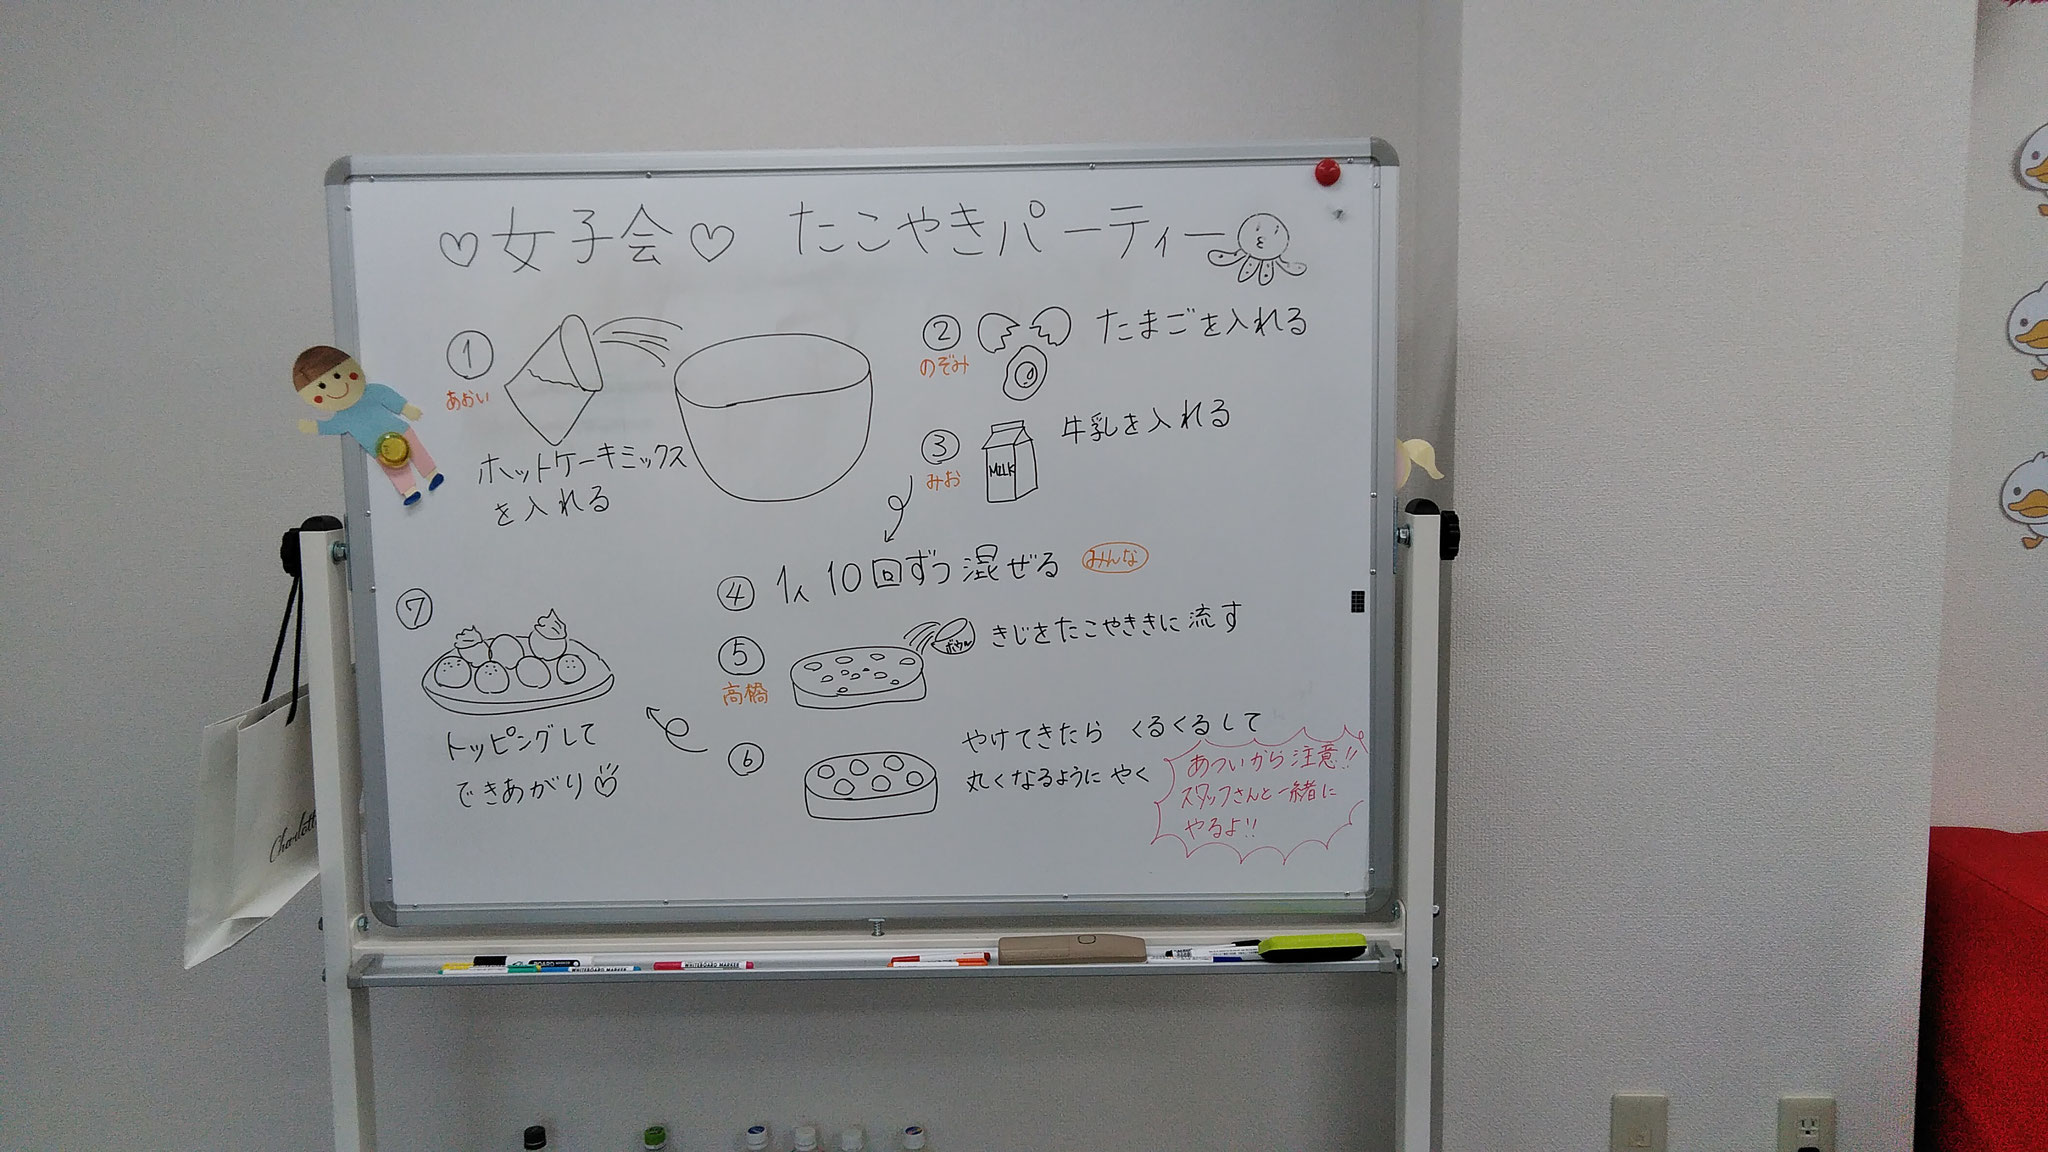 ♡女子会♡ たこやきパーティー
①
あおい
ホットケーキミックス
を入れる
②
のぞみ
たまごを入れる
③
みお
MILK
牛乳を入れる
④ 1人10回ずつ混ぜる みんな
⑤
高橋
ボウル
きじをたこやききに流す
⑥
やけてきたら くるくるして
丸くなるように やく
あついから注意!!
スタッフさんと一緒に
やるよ!!
⑦
トッピングして
できあがり♡
WHITEBOARD MARKER
WHITEBOARD MARKER
BOARD MARKER